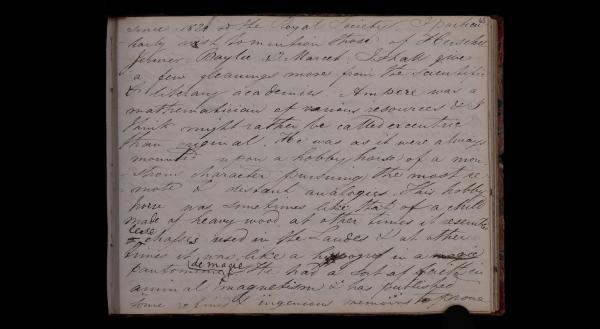 65
since 1820 to the Royal Society. I particu
larly wish to mention those of Herschel
Jenner Baylie & Marcet. I shall give
a few gleanings more from the Scientific
& literary academies. Ampere was a
mathematician of various resources & I
think might rather be called excentric
than original. He was as it were always
mounted upon a hobby horse of a mon
strous character pursuing the most re
mote & distant analogies. This hobby
horse was sometimes like that of a child
made of heavy wood at other times it resembled
those
shapes used in the Landes & at other
times it was like a hypogrif in a magic
de magie
pantomime. He had a sort of faith in
animal magnetism & has published
some refined & ingenious memoirs to prove